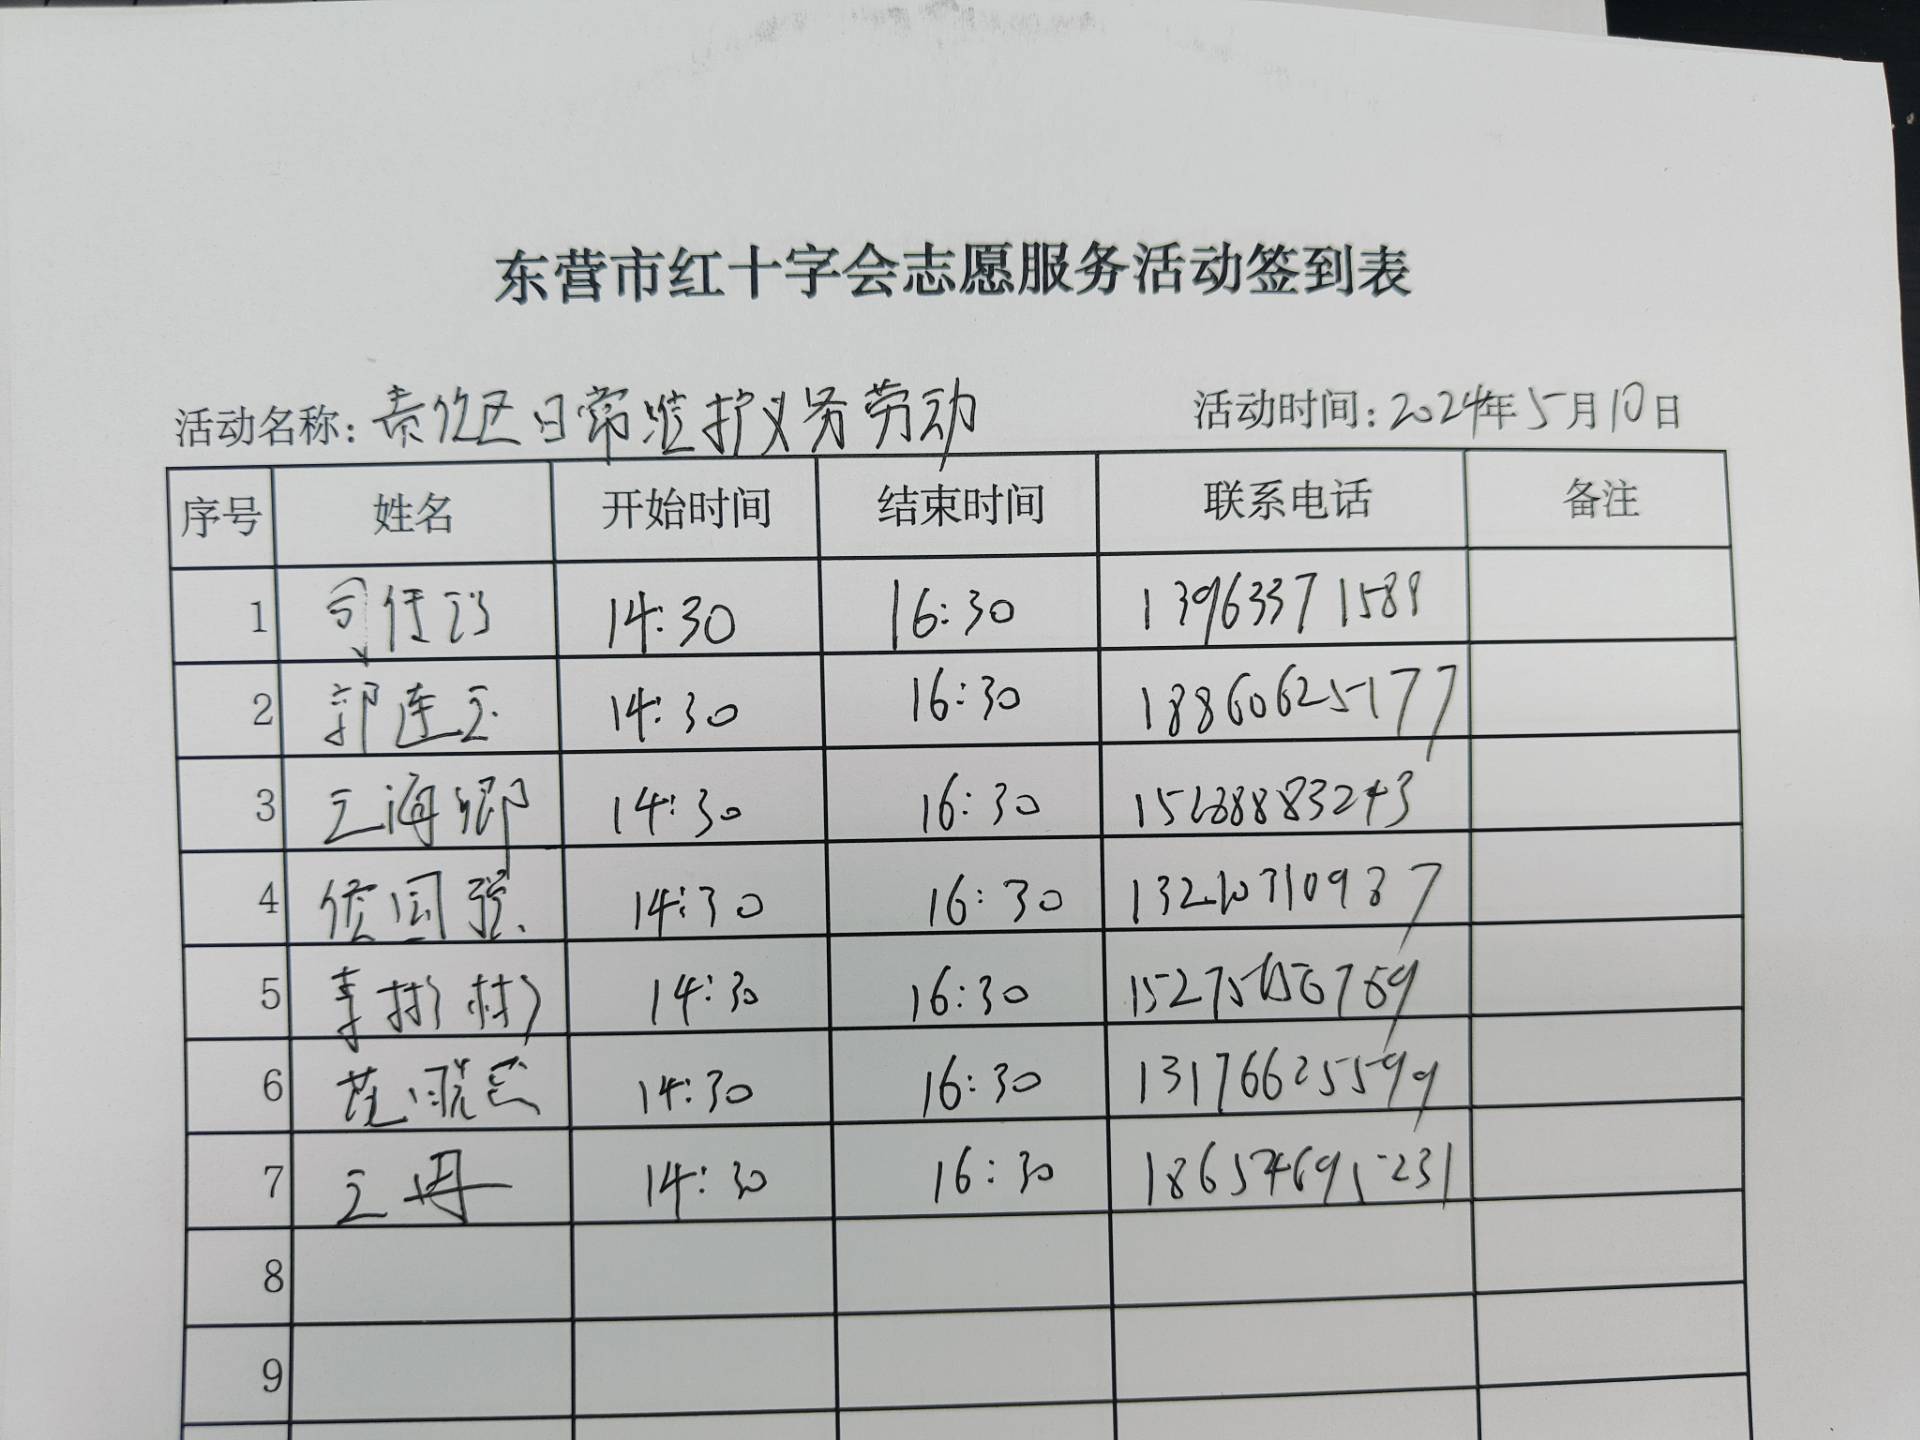 东营市红十字会志愿服务活动签到表
活动名称: 责任区日常维护义务劳动 活动时间: 2024年5月10日
序号 姓名 开始时间 结束时间 联系电话 备注
1 14:30 16:30 13963371588
2 郭连玉 14:30 16:30 18860625177
3 王海卿 14:30 16:30
4 侯国强 14:30 16:30
5 李彬彬 14:30 16:30
6 范晓 14:30 16:30 13176625599
7 王冉 14:30 16:30 18654695231
8
9